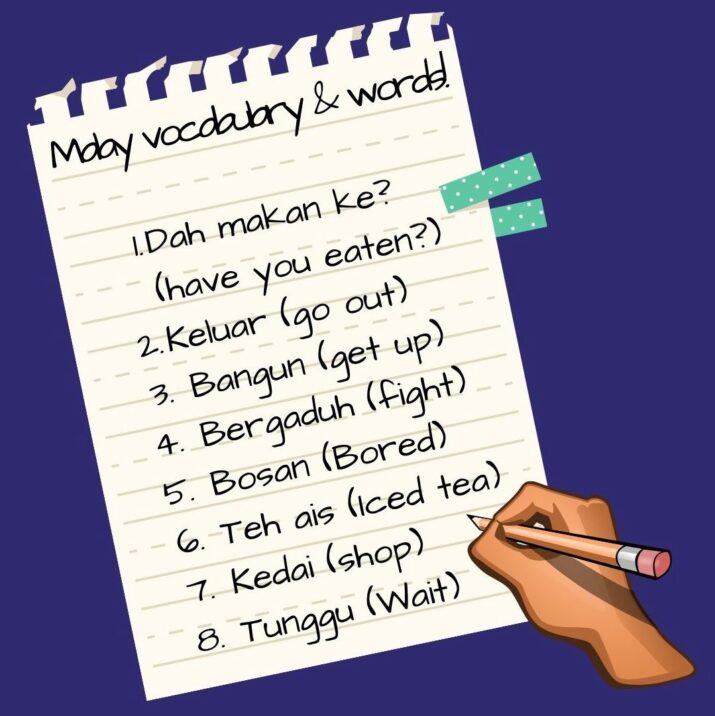 Malay vocabulary & words!
1.Dah makan ke?
(have you eaten?)
2.Keluar (go out)
3. Bangun (get up)
4. Bergaduh (fight)
5. Bosan (Bored)
6. Teh ais (Iced tea)
7. Kedai (shop)
8. Tunggu (Wait)